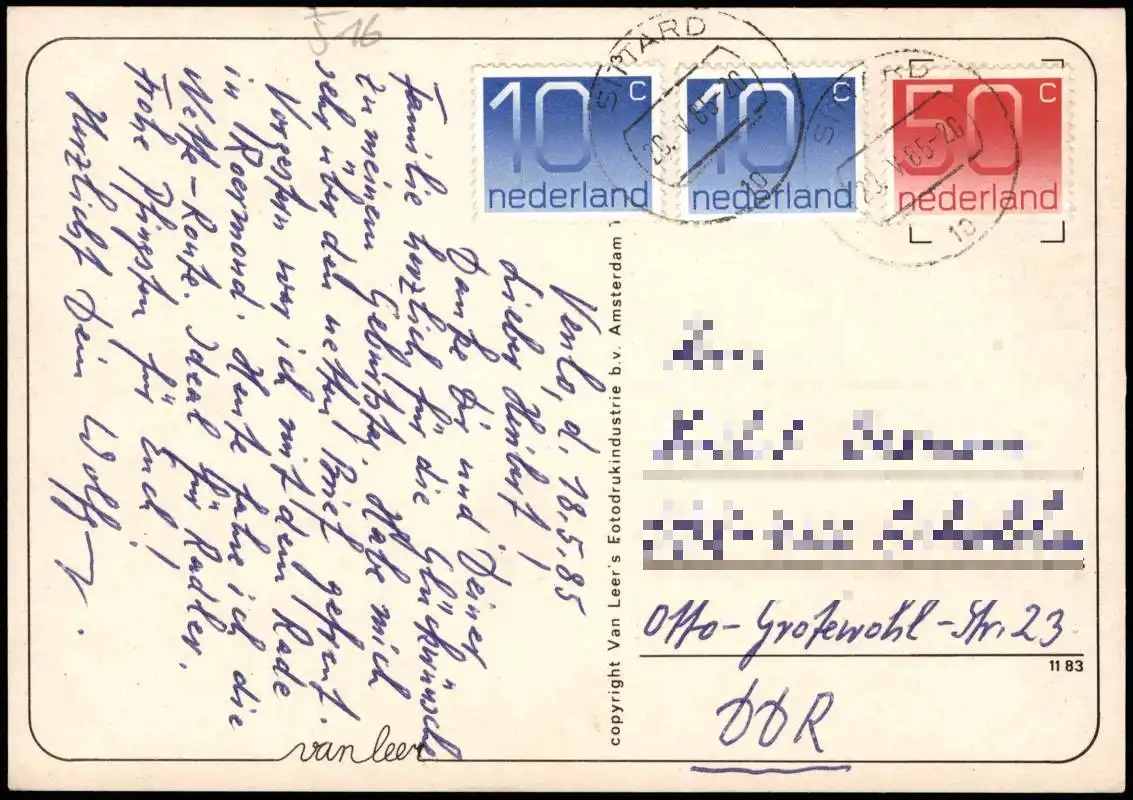 Venlo, d. 18.5.85
Lieber Heribert!
Danke Dir und Deiner
Familie herzlich für die Glückwünsche
zu meinem Geburtstag. Habe mich
sehr über den netten Brief gefreut.
Vorgestern war ich mit dem Rade
in Roermond. Heute fahre ich die
Route. Ideal für Radler.
Frohe Pfingsten für Euch!
Herzlichst Dein Wolfg
van leer
copyright Van Leer's Fotodrukindustrie b.v. Amsterdam
10 c
nederland
10 c
nederland
50 c
nederland
SITTARD
20. V. 85-20
10
SITTARD
20. V. 85-20
10
Otto-Grotewohl-Str. 23
11 83
DDR